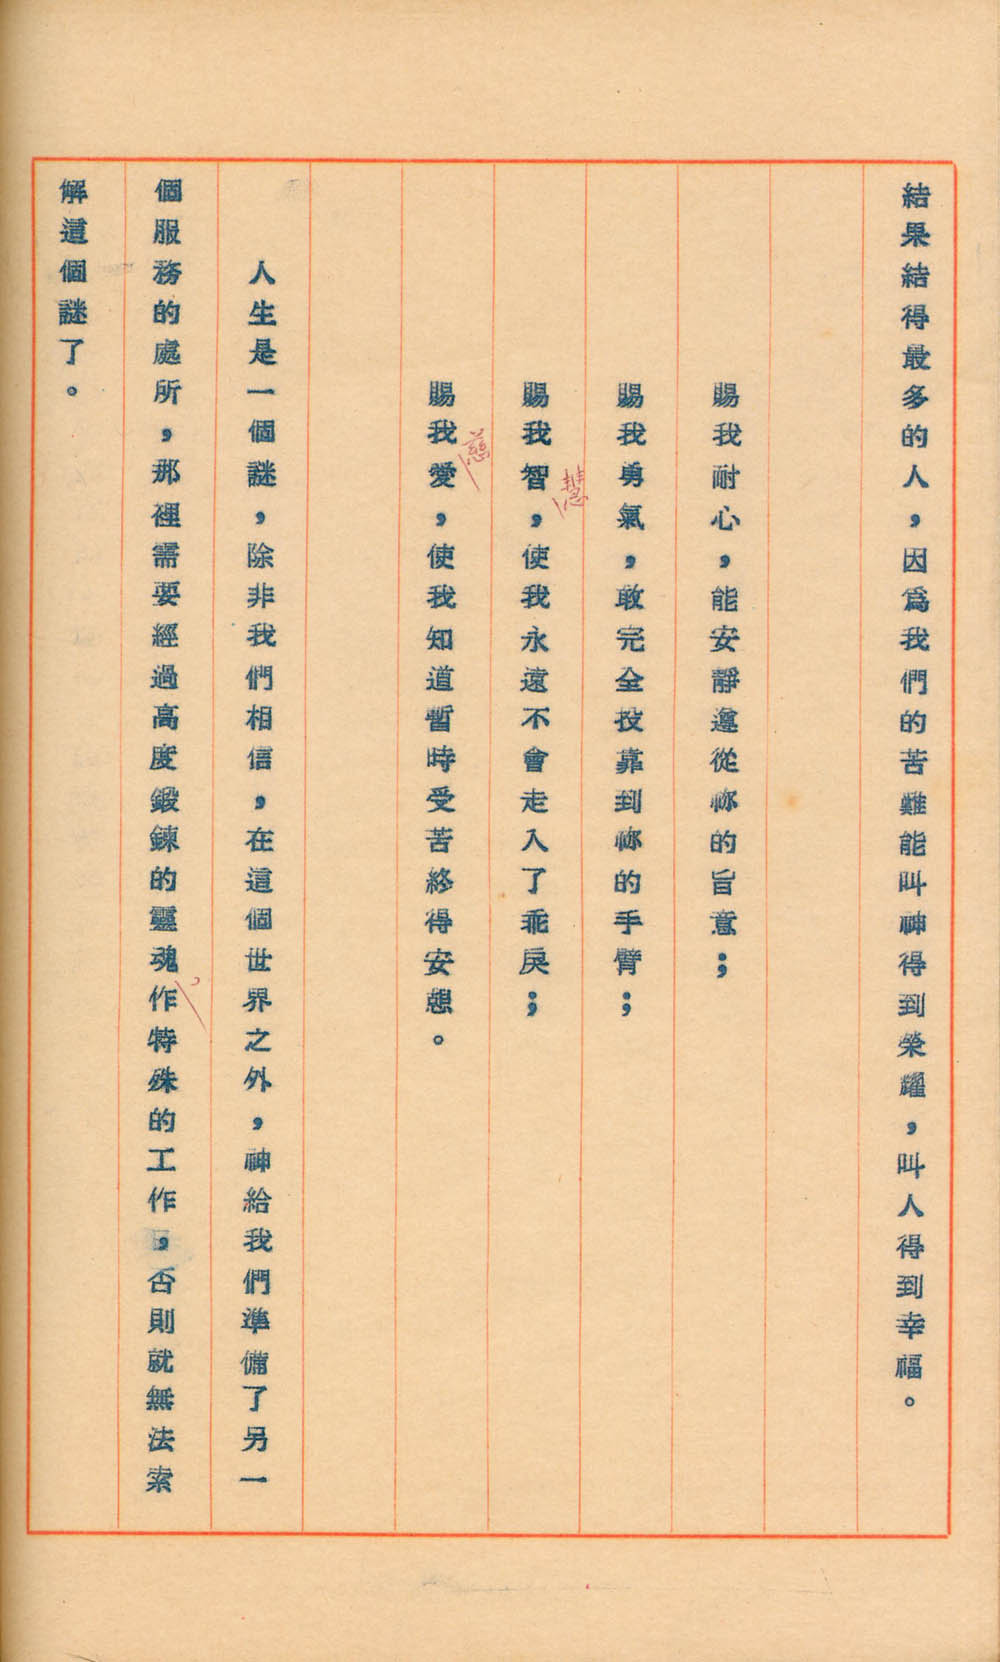 結果結得最多的人，因爲我們的苦難能叫神得到榮耀，叫人得到幸福。
賜我耐心，能安靜遵從祢的旨意；
賜我勇氣，敢完全投靠到祢的手臂；
賜我智慧，使我永遠不會走入了乖戾；
賜我慈愛，使我知道暫時受苦終得安憩。
人生是一個謎，除非我們相信，在這個世界之外，神給我們準備了另一
個服務的處所，那裡需要經過高度鍛鍊的靈魂，作特殊的工作，否則就無法索
解這個謎了。